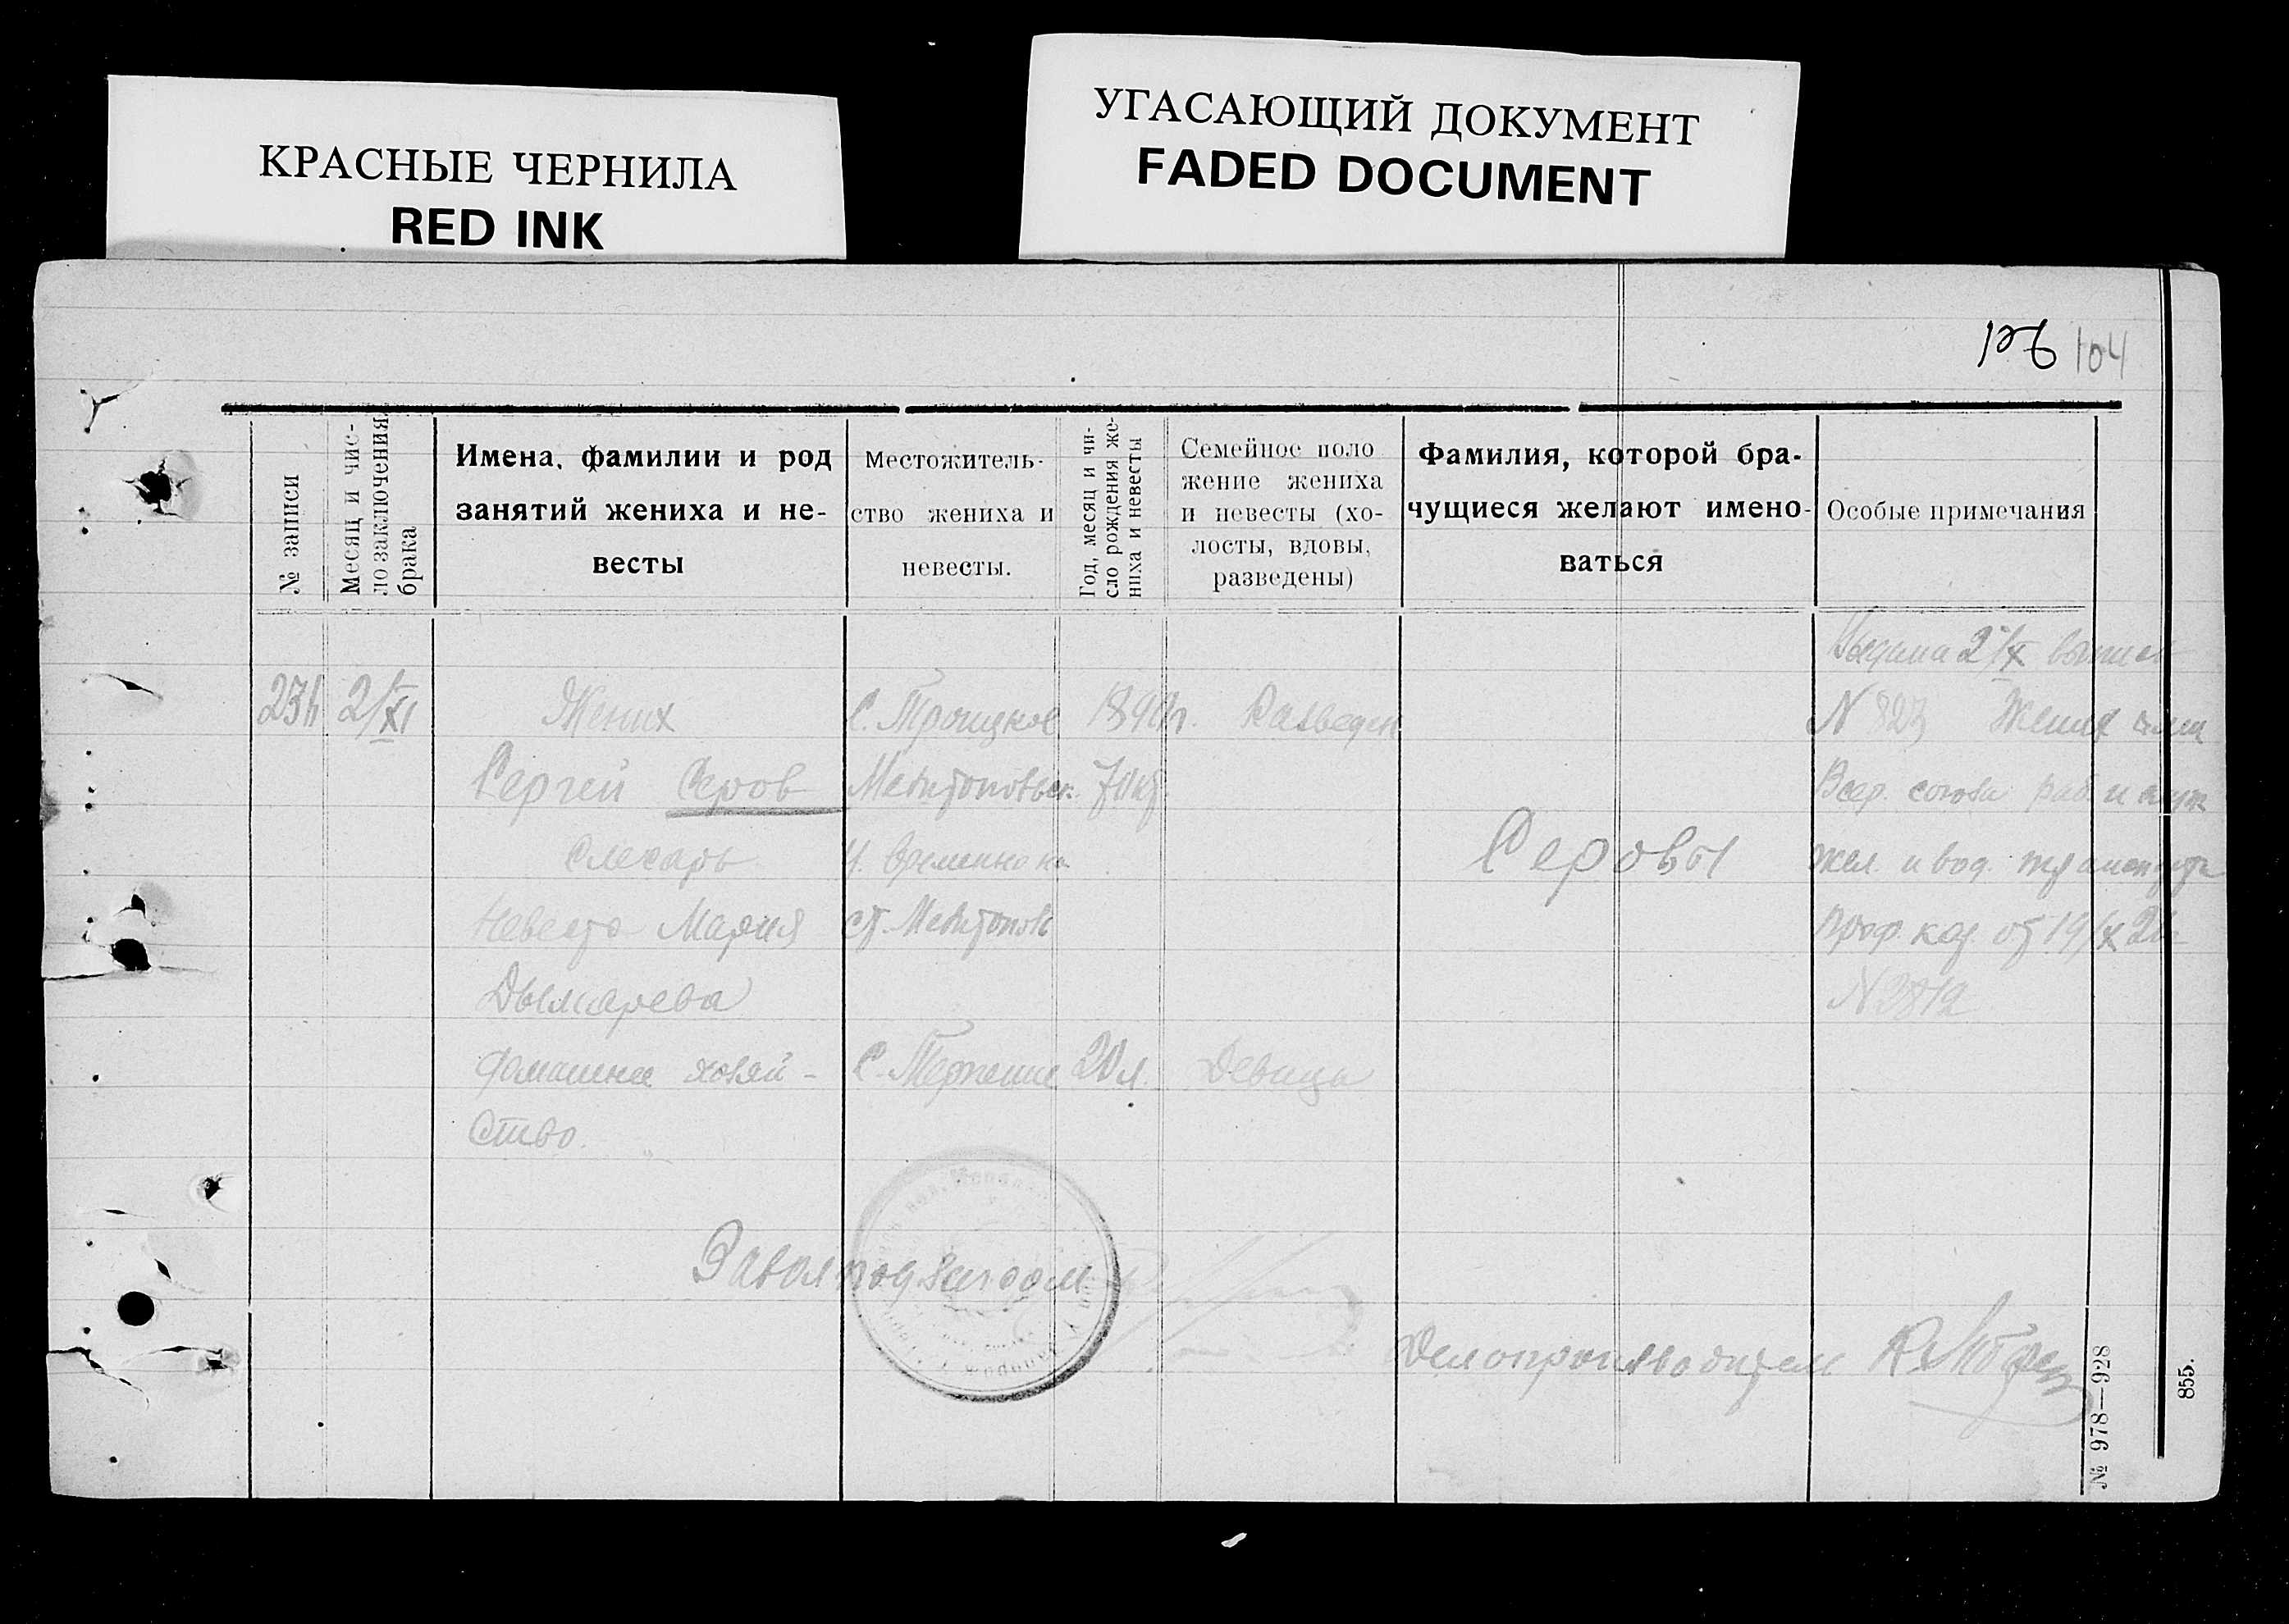 КРАСНЫЕ ЧЕРНИЛА
RED INK
УГАСАЮЩИЙ ДОКУМЕНТ
FADED DOCUMENT
104
№ записи
Месяц и чис-
ло заключения
брака
Имена, фамилии и род
занятий жениха и не-
весты
Местожитель-
ство жениха и
невесты.
Год, месяц и чи-
сло рождения же-
ниха и невесты
Семейное поло
жение жениха
и невесты (хо-
лосты, вдовы,
разведены)
Фамилия, которой бра-
чущиеся желают имено-
ваться
Особые примечания
2/XI
Жених
Сергей Серов
слесарь
Невеста Мария
Дымарева
домашнее хозяй-
ство.
С. Троицкое
Мелитопольск.
у. временно на
ст. Мелитополь
С. Терпение
7 окт.
20 л.
Разведен
Девица
Серовы
Выдана 2/X выпись
N 823 Жених член
Всер. союза раб. и служ
жел. и вод. транспорта
от 19/X
N 3812
Завялподзагсом
Делопроизводитель
№ 978—928
855.